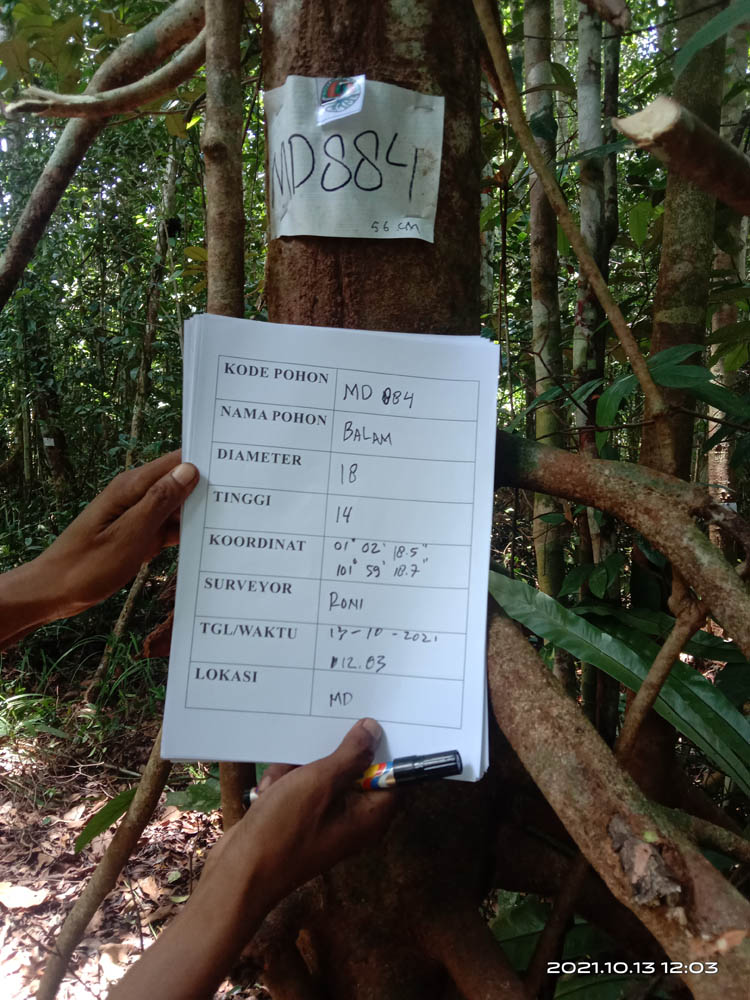 MD884
56 cm
KODE POHON MD 884
NAMA POHON BALAM
DIAMETER 18
TINGGI 14
KOORDINAT 01° 02' 18.5"
101° 59' 18.7"
SURVEYOR RONI
TGL/WAKTU 13-10-2021
12.03
LOKASI MD
2021.10.13 12:03